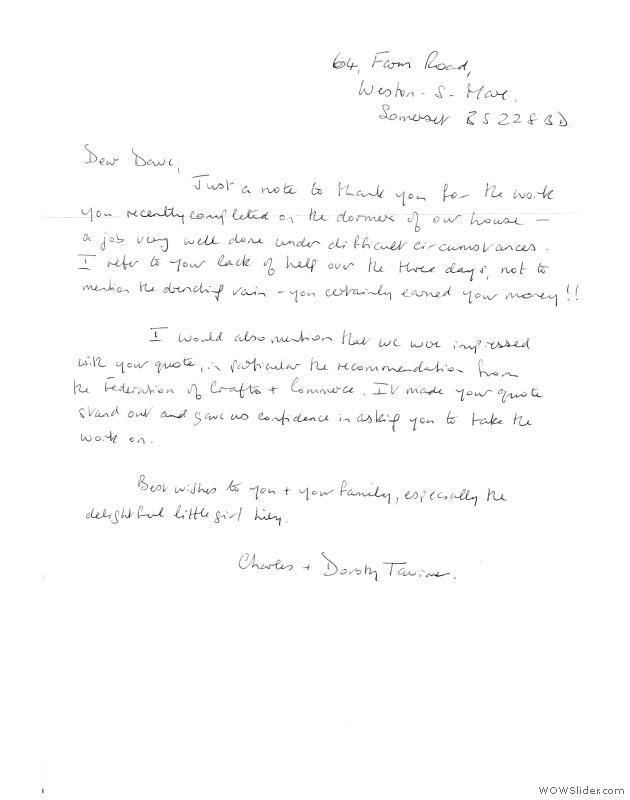 64, Farm Road,
Weston-S-Mare.
Somerset BS22 8BD
Dear Dave,
Just a note to thank you for the work
you recently completed on the dormer of our house –
a job very well done under difficult circumstances.
I refer to your lack of help over the three days, not to
mention the drenching rain – you certainly earned your money!!
I would also mention that we were impressed
with your quote, in particular the recommendation from
the Federation of Crafts + Commerce. It made your quote
stand out and gave us confidence in asking you to take the
work on.
Best wishes to you + your family, especially the
delightful little girl
Charles + Dorothy
WOWSlider.com